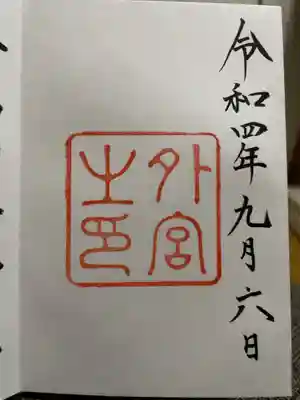 令和四年九月六日
外宮
之印